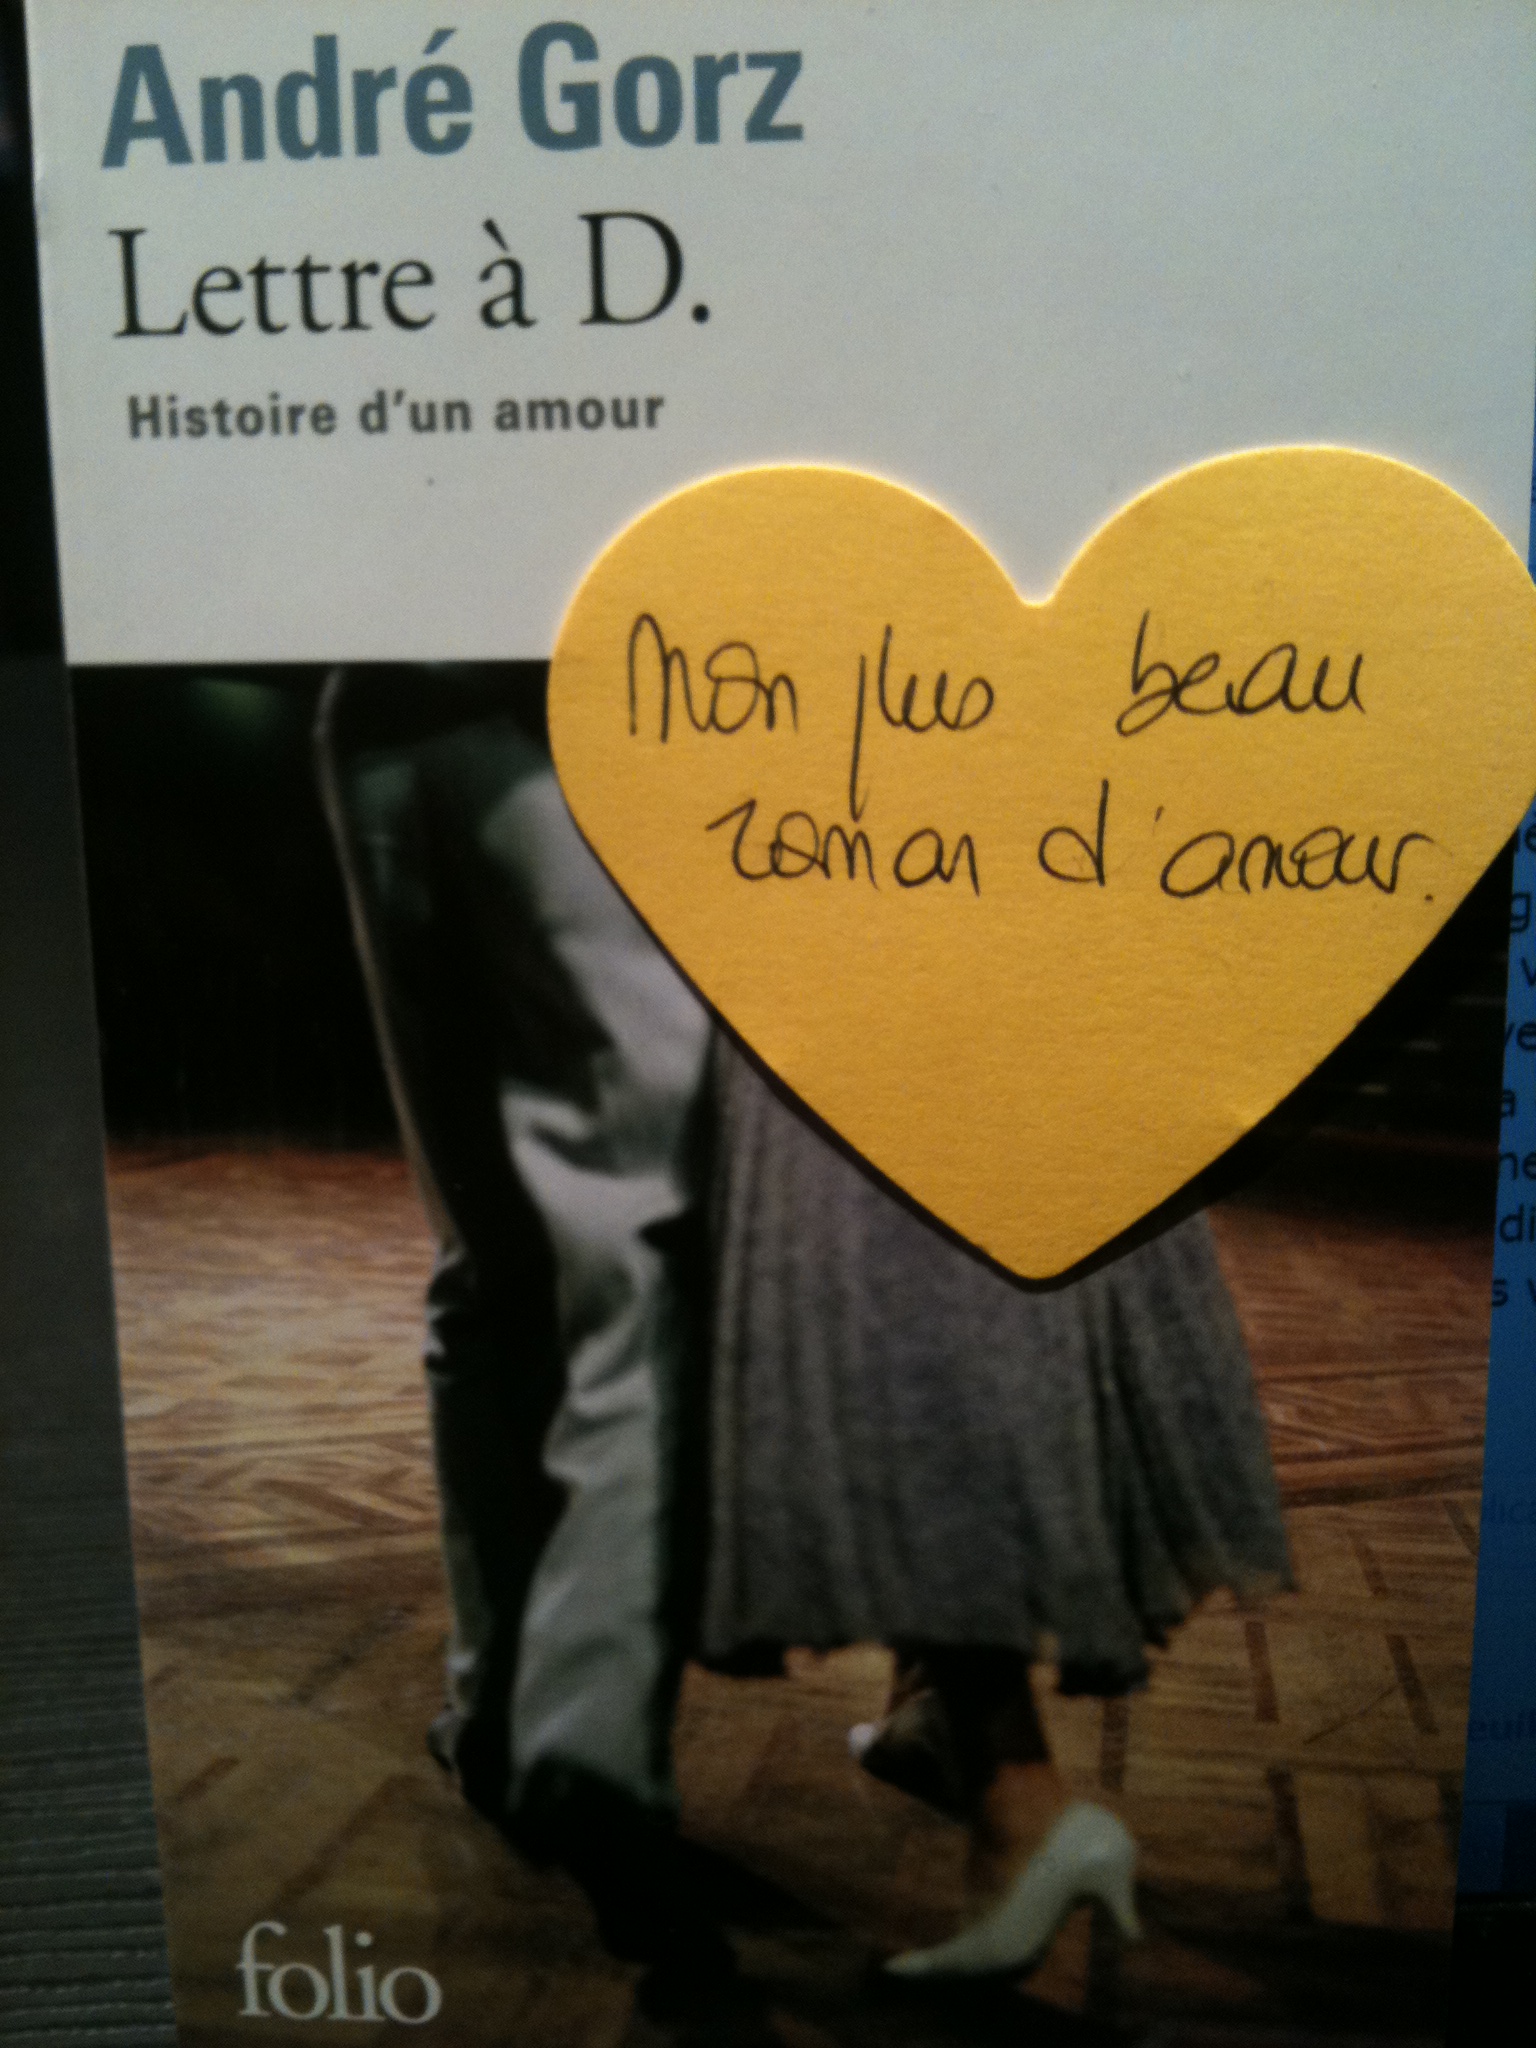 André Gorz
Lettre à D.
Histoire d'un amour
Mon plus beau
roman d'amour.
folio